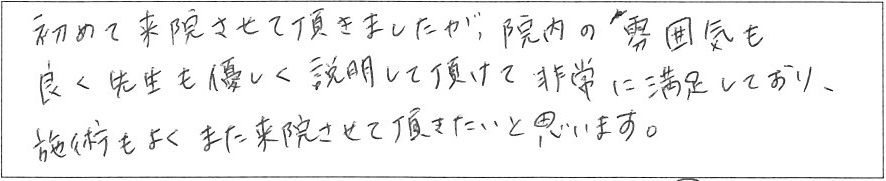 初めて来院させて頂きましたが、院内の雰囲気も
良く先生も優しく説明して頂けて非常に満足しており、
施術もよくまた来院させて頂きたいと思います。